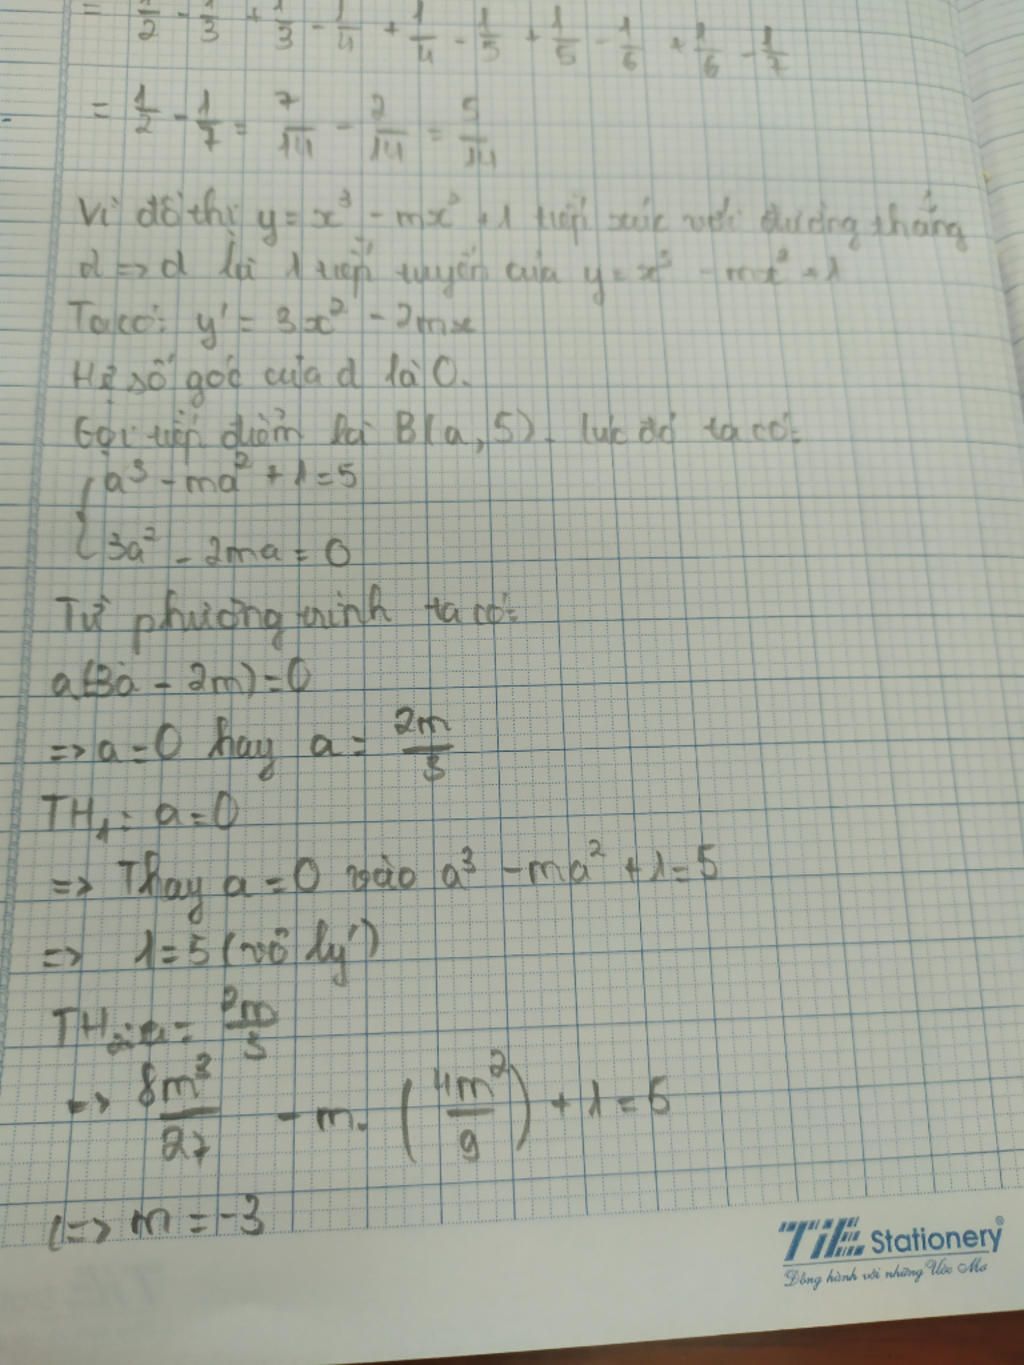 = 1/2 - 1/3 + 1/3 - 1/4 + 1/4 - 1/5 + 1/5 - 1/6 + 1/6 - 1/7
= 1/2 - 1/7 = 7/14 - 2/14 = 5/14
Vì đồ thị y = x³ - mx² + 1 tiếp xúc với đường thẳng
d => d là 1 tiếp tuyến của y = x³ - mx² + 1
Ta có: y' = 3x² - 2mx
Hệ số góc của d là 0.
Gọi tiếp điểm là B(a, 5). lúc đó ta có:
{ a³ - ma² + 1 = 5
3a² - 2ma = 0
Từ phương trình ta có:
a(3a - 2m) = 0
=> a = 0 hay a = 2m/3
TH₁: a = 0
=> Thay a = 0 vào a³ - ma² + 1 = 5
=> 1 = 5 (vô lý)
TH₂: a = 2m/3
=> 8m³/27 - m. (4m²/9) + 1 = 5
(=> m = -3
TiE Stationery®
Đồng hành với những Ước Mơ